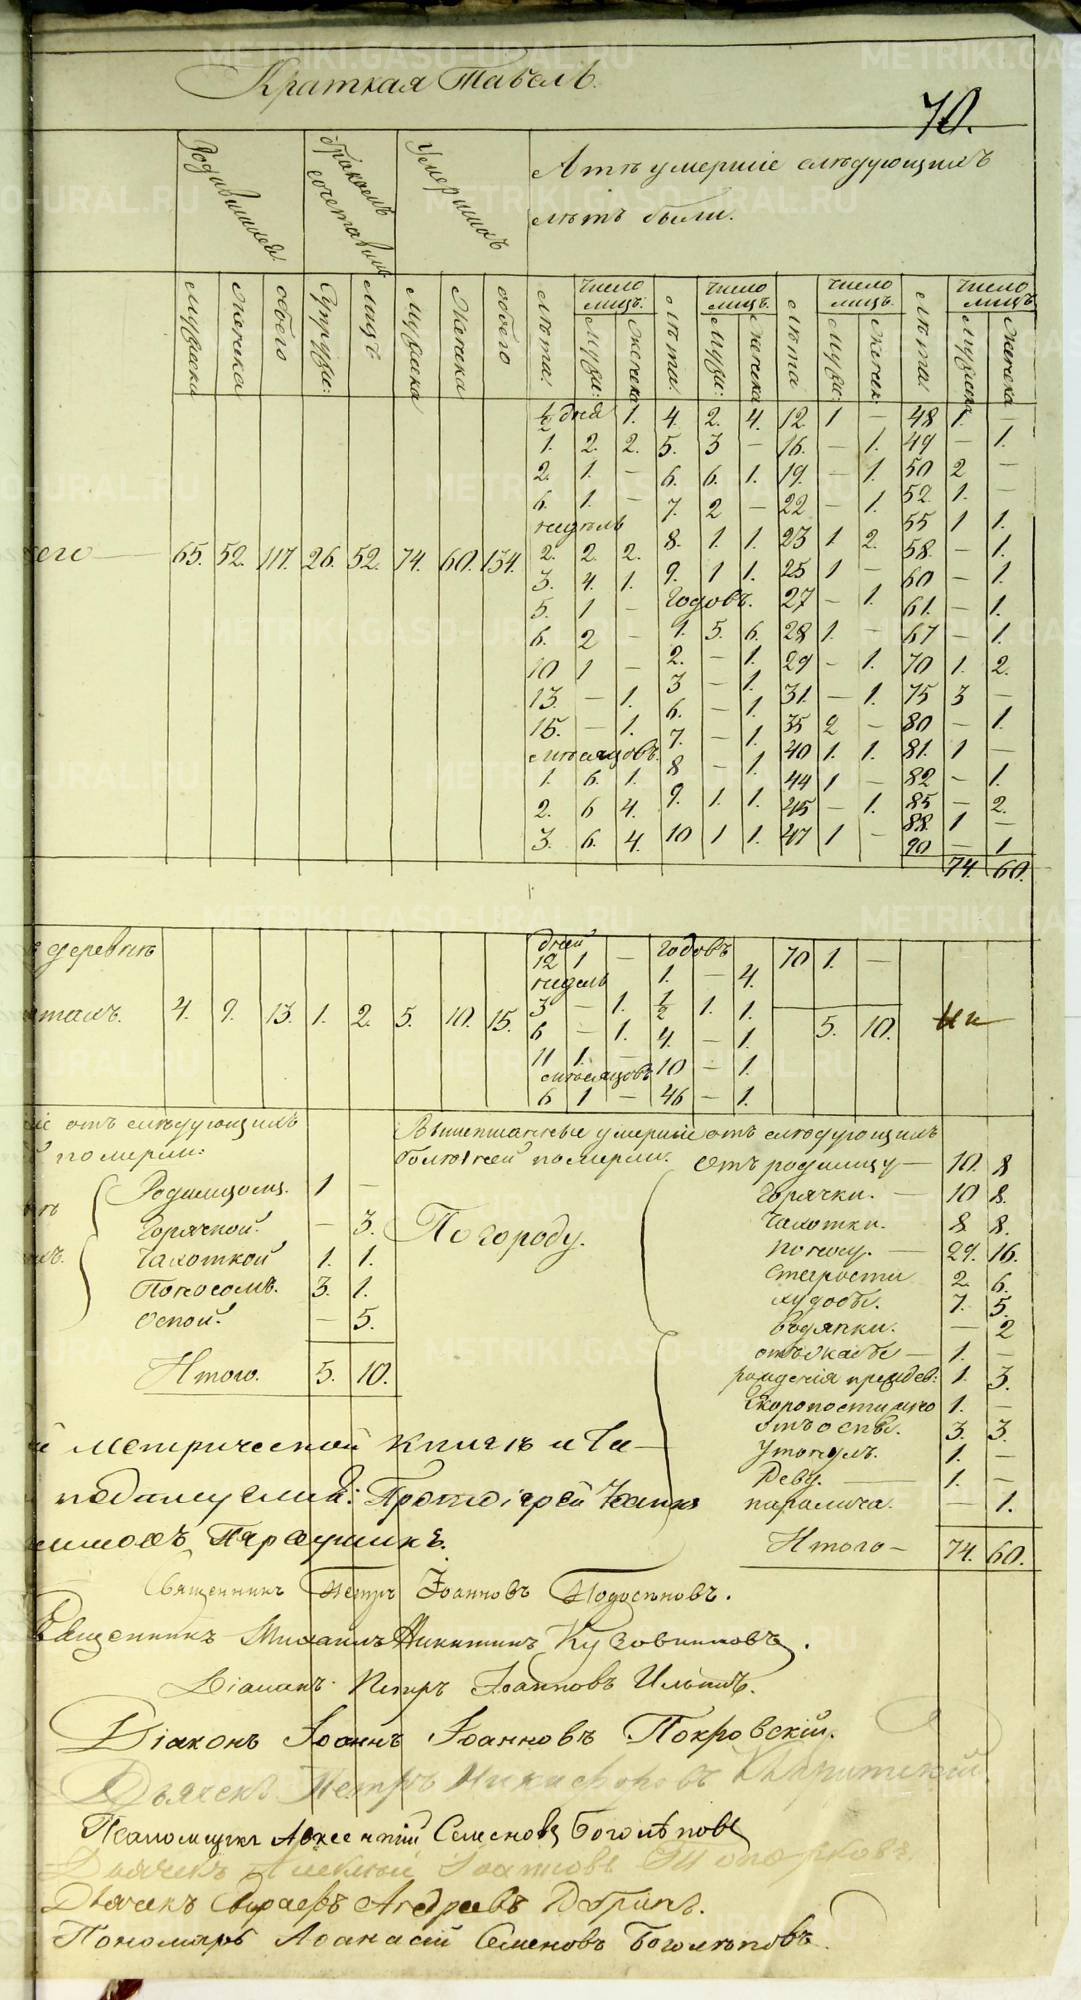 Краткая Табель.
70.
Родившихся
бракомъ сочетавших
Умершихъ
А тѣ умершіе слѣдующихъ
лѣтъ были.
мужеска женска обоего Супруж: лицъ Мужска Женска обоего
Лѣта. число лицъ. Муж: Женска лѣта. число лицъ. Муж: Женска лѣта число лицъ. Муж: Женск: лѣта. число лицъ. Мужска Женска
½ дня 1. 4. 2. 4. 12. 1 — 48 1. —
1. 2. 2. 5. 3 — 16. — 1. 49 — 1.
2. 1. — 6. 6. 1. 19. — 1. 50 2 —
6. 1. — 7. 2 — 22 — 1. 52. 1. —
недѣль 55 1 1.
его — 65. 52. 117. 26. 52. 74. 60. 134.
2. 2. 2. 8. 1. 1. 23 1 2. 58. — 1.
3. 4. 1. 9. 1 1. 25 1 — 60 — 1.
5. 1 — Годовъ. 27 — 1. 61. — 1.
6. 2 — 1. 5. 6. 28 1. — 67 — 1.
10 1 — 2. — 1. 29 — 1. 70 1. 2.
13. — 1. 3 — 1. 31. — 1. 75 3 —
15. — 1. 6. — 1. 35 2 — 80 — 1.
мѣсяцовъ. 7. — 1. 40 1. 1. 81. 1 —
1. 6. 1. 8 — 1. 44 1 — 82 — 1.
2. 6 4. 9. 1. 1. 45 — 1. 85 — 2.
3. 6. 4. 10 1 1. 47 1 — 88. 1 —
90 — 1
74. 60.
деревнѣ
4. 9. 13. 1. 2. 5. 10. 15.
дней годовъ 70 1. —
12 1 — 1. — 4.
недель
3 — 1. ½ 1. 1. 5. 10.
6 — 1. 4. — 1.
11 1. — 10 — 1.
мѣсяцовъ
6 1 — 46 — 1.
отъ слѣдующихъ
померли:
Родимцомъ. 1 —
Горячкой. — 3.
Чахоткой 1. 1.
Поносомъ. 3. 1.
Оспой. — 5.
Итого. 5. 10.
Вышеписанные умершіе отъ слѣдующихъ
болѣзней померли.
По городу.
Отъ родимцу — 10. 8
Горячки. — 10 8.
Чахотки. 8. 8.
Поносу. — 29. 16.
Старости 2. 6.
худобы. 7. 5.
Водянки. — 2
отъ жабы — 1. —
рожденія преждев: 1. 3.
Скоропостижно 1. —
отъ оспы. 3. 3.
Утонулъ. 1. —
1. —
паралича. — 1.
Итого — 74. 60.
й метрической книгѣ и та
подлинелии: Протоіерей Іоаннъ
Священникъ Петръ Іоанновъ Подосеновъ.
Священникъ Михаилъ Никитинъ Кузовниковъ.
Діаконъ Петръ Іоанновъ Ильинъ.
Діаконъ Іоаннъ Іоанновъ Покровскій.
Дьячекъ Петръ Никифоровъ
Псаломщикъ Арсентій Семеновъ Боголѣповъ
Дьячекъ Алексѣй Іоанновъ Топорковъ
Дьячекъ Андреевъ
Пономарь Афанасій Семеновъ Боголѣповъ.